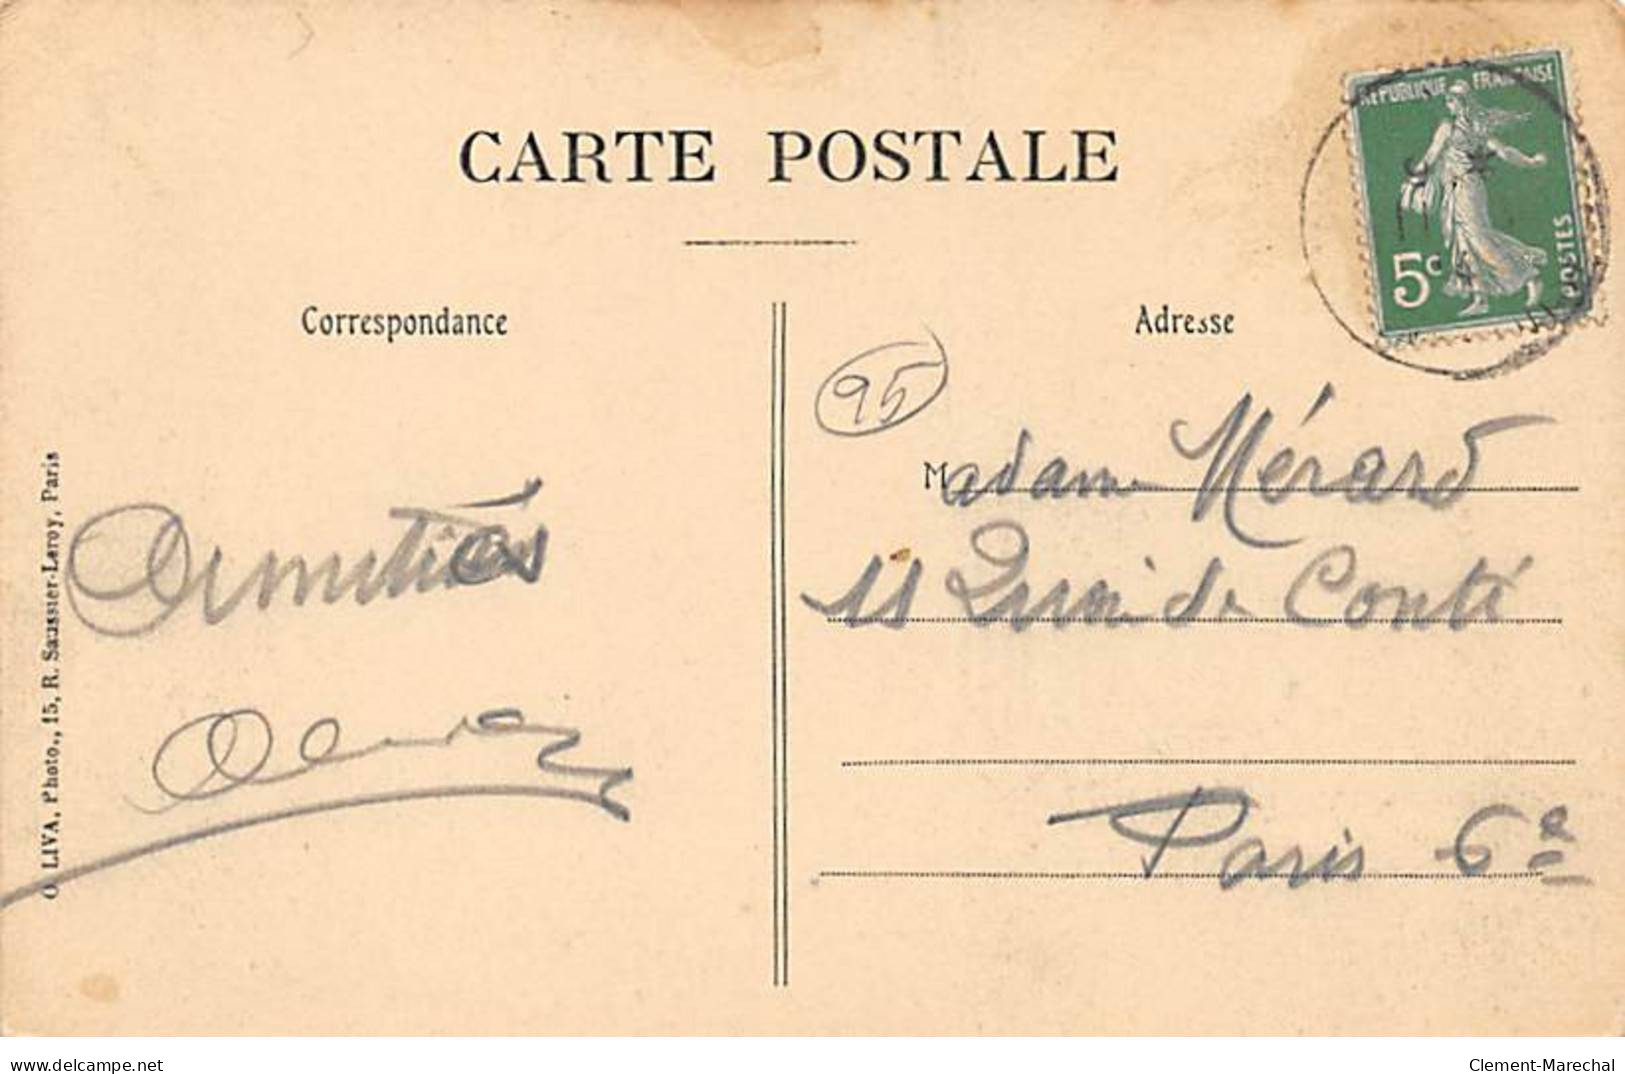 CARTE POSTALE
RÉPUBLIQUE FRANÇAISE
5c
POSTES
Correspondance
Adresse
95
Amitiés
Madame Mérard
11 Quai de Conti
Paris 6e
O. LIVA, Photo., 15, R. Saussier-Leroy, Paris
www.delcampe.net
Clement-Marechal